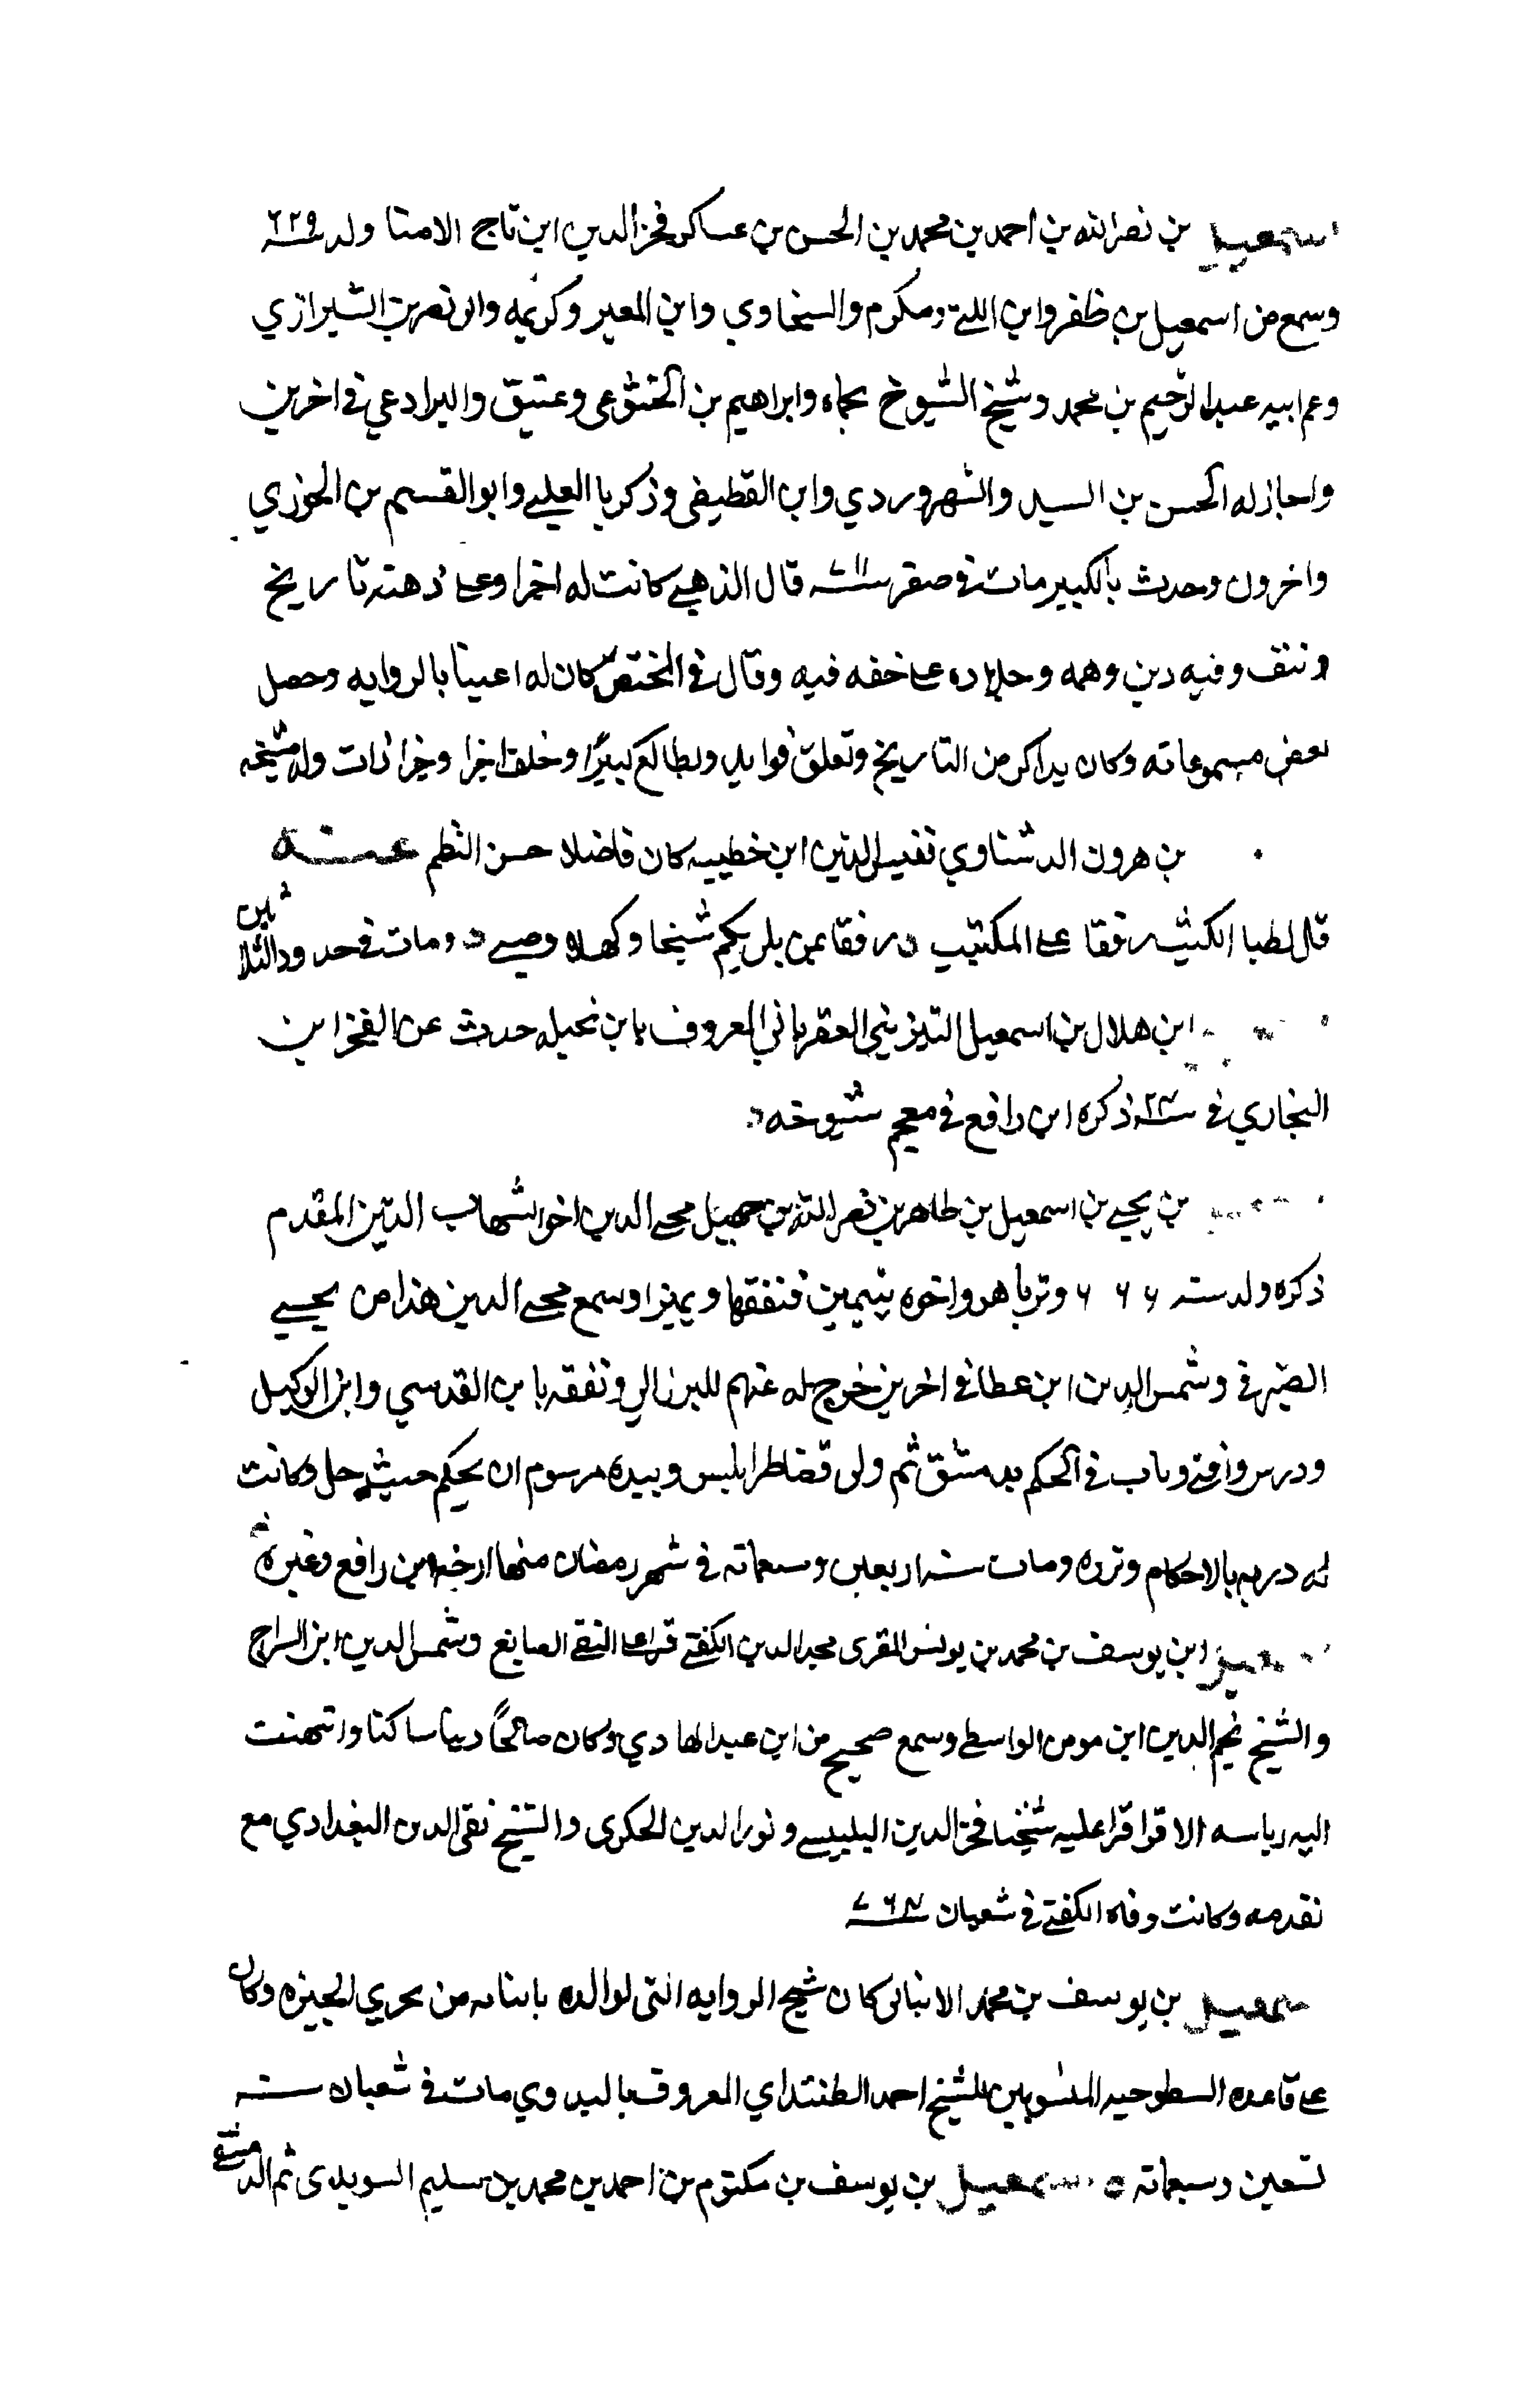 اسمعيل بن نصر الله بن احمد بن محمد بن الحسن بن عساكر فخر الدين ابن تاج الامنا ولد سنة ٦٢٩
وسمع من اسمعيل بن ظفر وابن اللتي ومكرم والسخاوي وابن المعير وكريمه وابو نصر بن الشيرازي
وعم ابيه عبد الرحيم بن محمد وشيخ الشيوخ بحماه وابراهيم بن الخشوعى وعتيق والبرادعي في اخرين
واجاز له الحسن بن السيد والسهروردي وابن القطيعى وزكريا العلبي وابو القسم بن الجوزي
واخرون وحدث بالكبير مات في صفر سنة ٧١١ قال الذهبي كانت له اجزا وعلى ذهنه تاريخ
ونتف وفيه دين وهمه وجلاده على خفه فيه وقال في المختص كان له اعتنا بالروايه وحصل
بعض مسموعاته وكان يذاكر من التاريخ وتعلق فوايد وطالع كثيرا وخلف اجزا وجزازات وله مشيخه
بن هرون الدشناوي نفيس الدين ابن خطيبه كان فاضلا حسن النظم عنه
قال لظبا الكثيب رفقا على المكتئب ورفقا بمن بلي بكم شيخا وكهلا وصبي ومات في حدود الثلاثين
ابن هلال بن اسمعيل التيزيني العقرباني المعروف بابن نحيله حدث عن الفخر ابن
البخاري في سنة ذكره ابن رافع في معجم شيوخه
بن يحيى بن اسمعيل بن طاهر بن نصر الله بن جهبل محيى الدين اخو شهاب الدين المقدم
ذكره ولد سنه ٦٦٦ وتربا هو واخوه يتيمين فتفقها وتميزا وسمع محيى الدين هذا من يحيى
الصيرفي وشمس الدين ابن عطا في اخرين خرج له عنهم للبرزالي وتفقه بابن القدسي وابن الوكيل
ودرس وافتى وناب في الحكم بدمشق ثم ولى قضا طرابلس وبيده مرسوم ان يحكم حيث حل وكانت
له دربه بالاحكام وتوده ومات سنه اربعين وسبعماته في شهر رمضان منها ارخه ابن رافع وغيره
ابن يوسف بن محمد بن يونس المقرى مجد الدين الكفتي قرا على التقى الصايغ وشمس الدين ابن السراج
والشيخ نجم الدين ابن مومن الواسطى وسمع صحيح من ابن عبد الهادي وكان صالحًا دينا ساكنا وانتهت
اليه رياسه الاقرا قرا عليه شيخنا فخر الدين البلبيسى ونور الدين الحكرى والشيخ تقى الدين البغدادي مع
تقدمه وكانت وفاه الكفتي في شعبان سنة ٧٦٤
اسمعيل بن يوسف بن محمد الانبابى كان شيخ الزوايه التى لوالده بانبابه من بحري الجيزه وكان
على قاعده السطوحيه المنسوبين للشيخ احمد الطنتداي المعروف بالبدوي مات في شعبان سنه
تسعين وسبعماته اسمعيل بن يوسف بن مكتوم بن احمد بن محمد بن سليم السويدى ثم الدمشقي